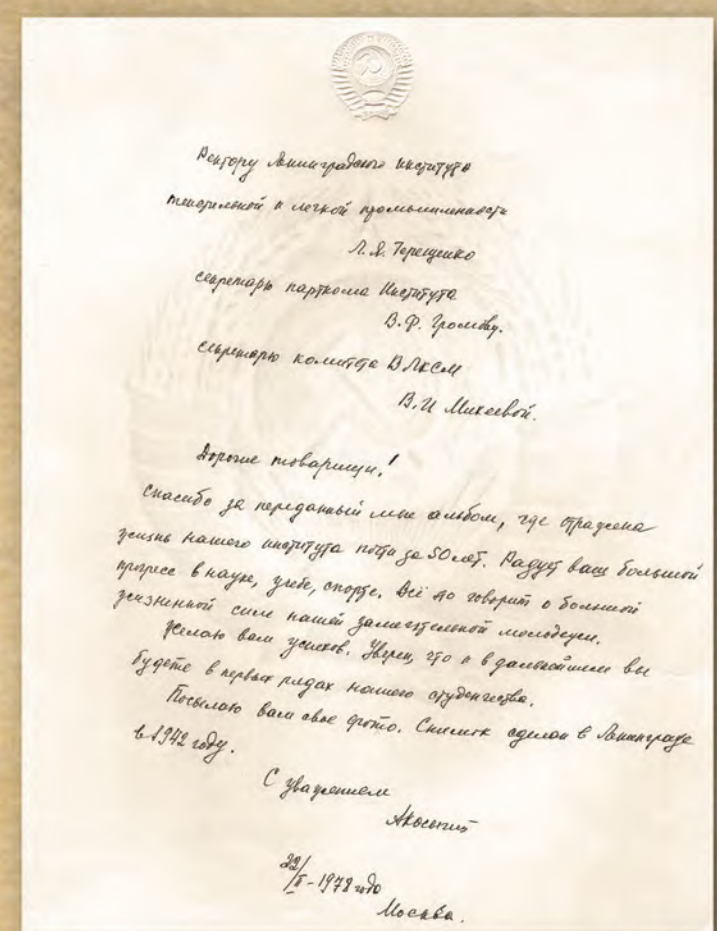 Ректору Ленинградского института
текстильной и легкой промышленности
Л.Я. Терещенко
секретарю парткома Института
В.Ф. Громову.
секретарю комитета ВЛКСМ
В.И Михеевой.
Дорогие товарищи!
Спасибо за переданный мне альбом, где отражена
жизнь нашего института почти за 50 лет. Радует ваш большой
прогресс в науке, учебе, спорте. Всё это говорит о большой
жизненной силе нашей замечательной молодежи.
Желаю вам успехов. Уверен, что и в дальнейшем вы
будете в первых рядах нашего студенчества.
Посылаю вам свое фото. Снимок сделан в Ленинграде
в 1942 году.
С уважением
АКосыгин
1978 года
Москва.